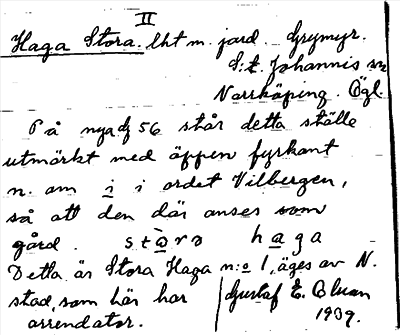 II
Haga Stora. lht m. jord. Grymyr.
S:t Johannis sn
Norrköping. Ögl.
På nya dz 56 står detta ställe
utmärkt med öppen fyrkant
n. om i i ordet Vilbergen,
så att den där anses som
gård. stora haga
Detta är Stora Haga n:o 1, äges av N.
stad, som här har
arrendator.
Gustaf E. Bluan
1939.